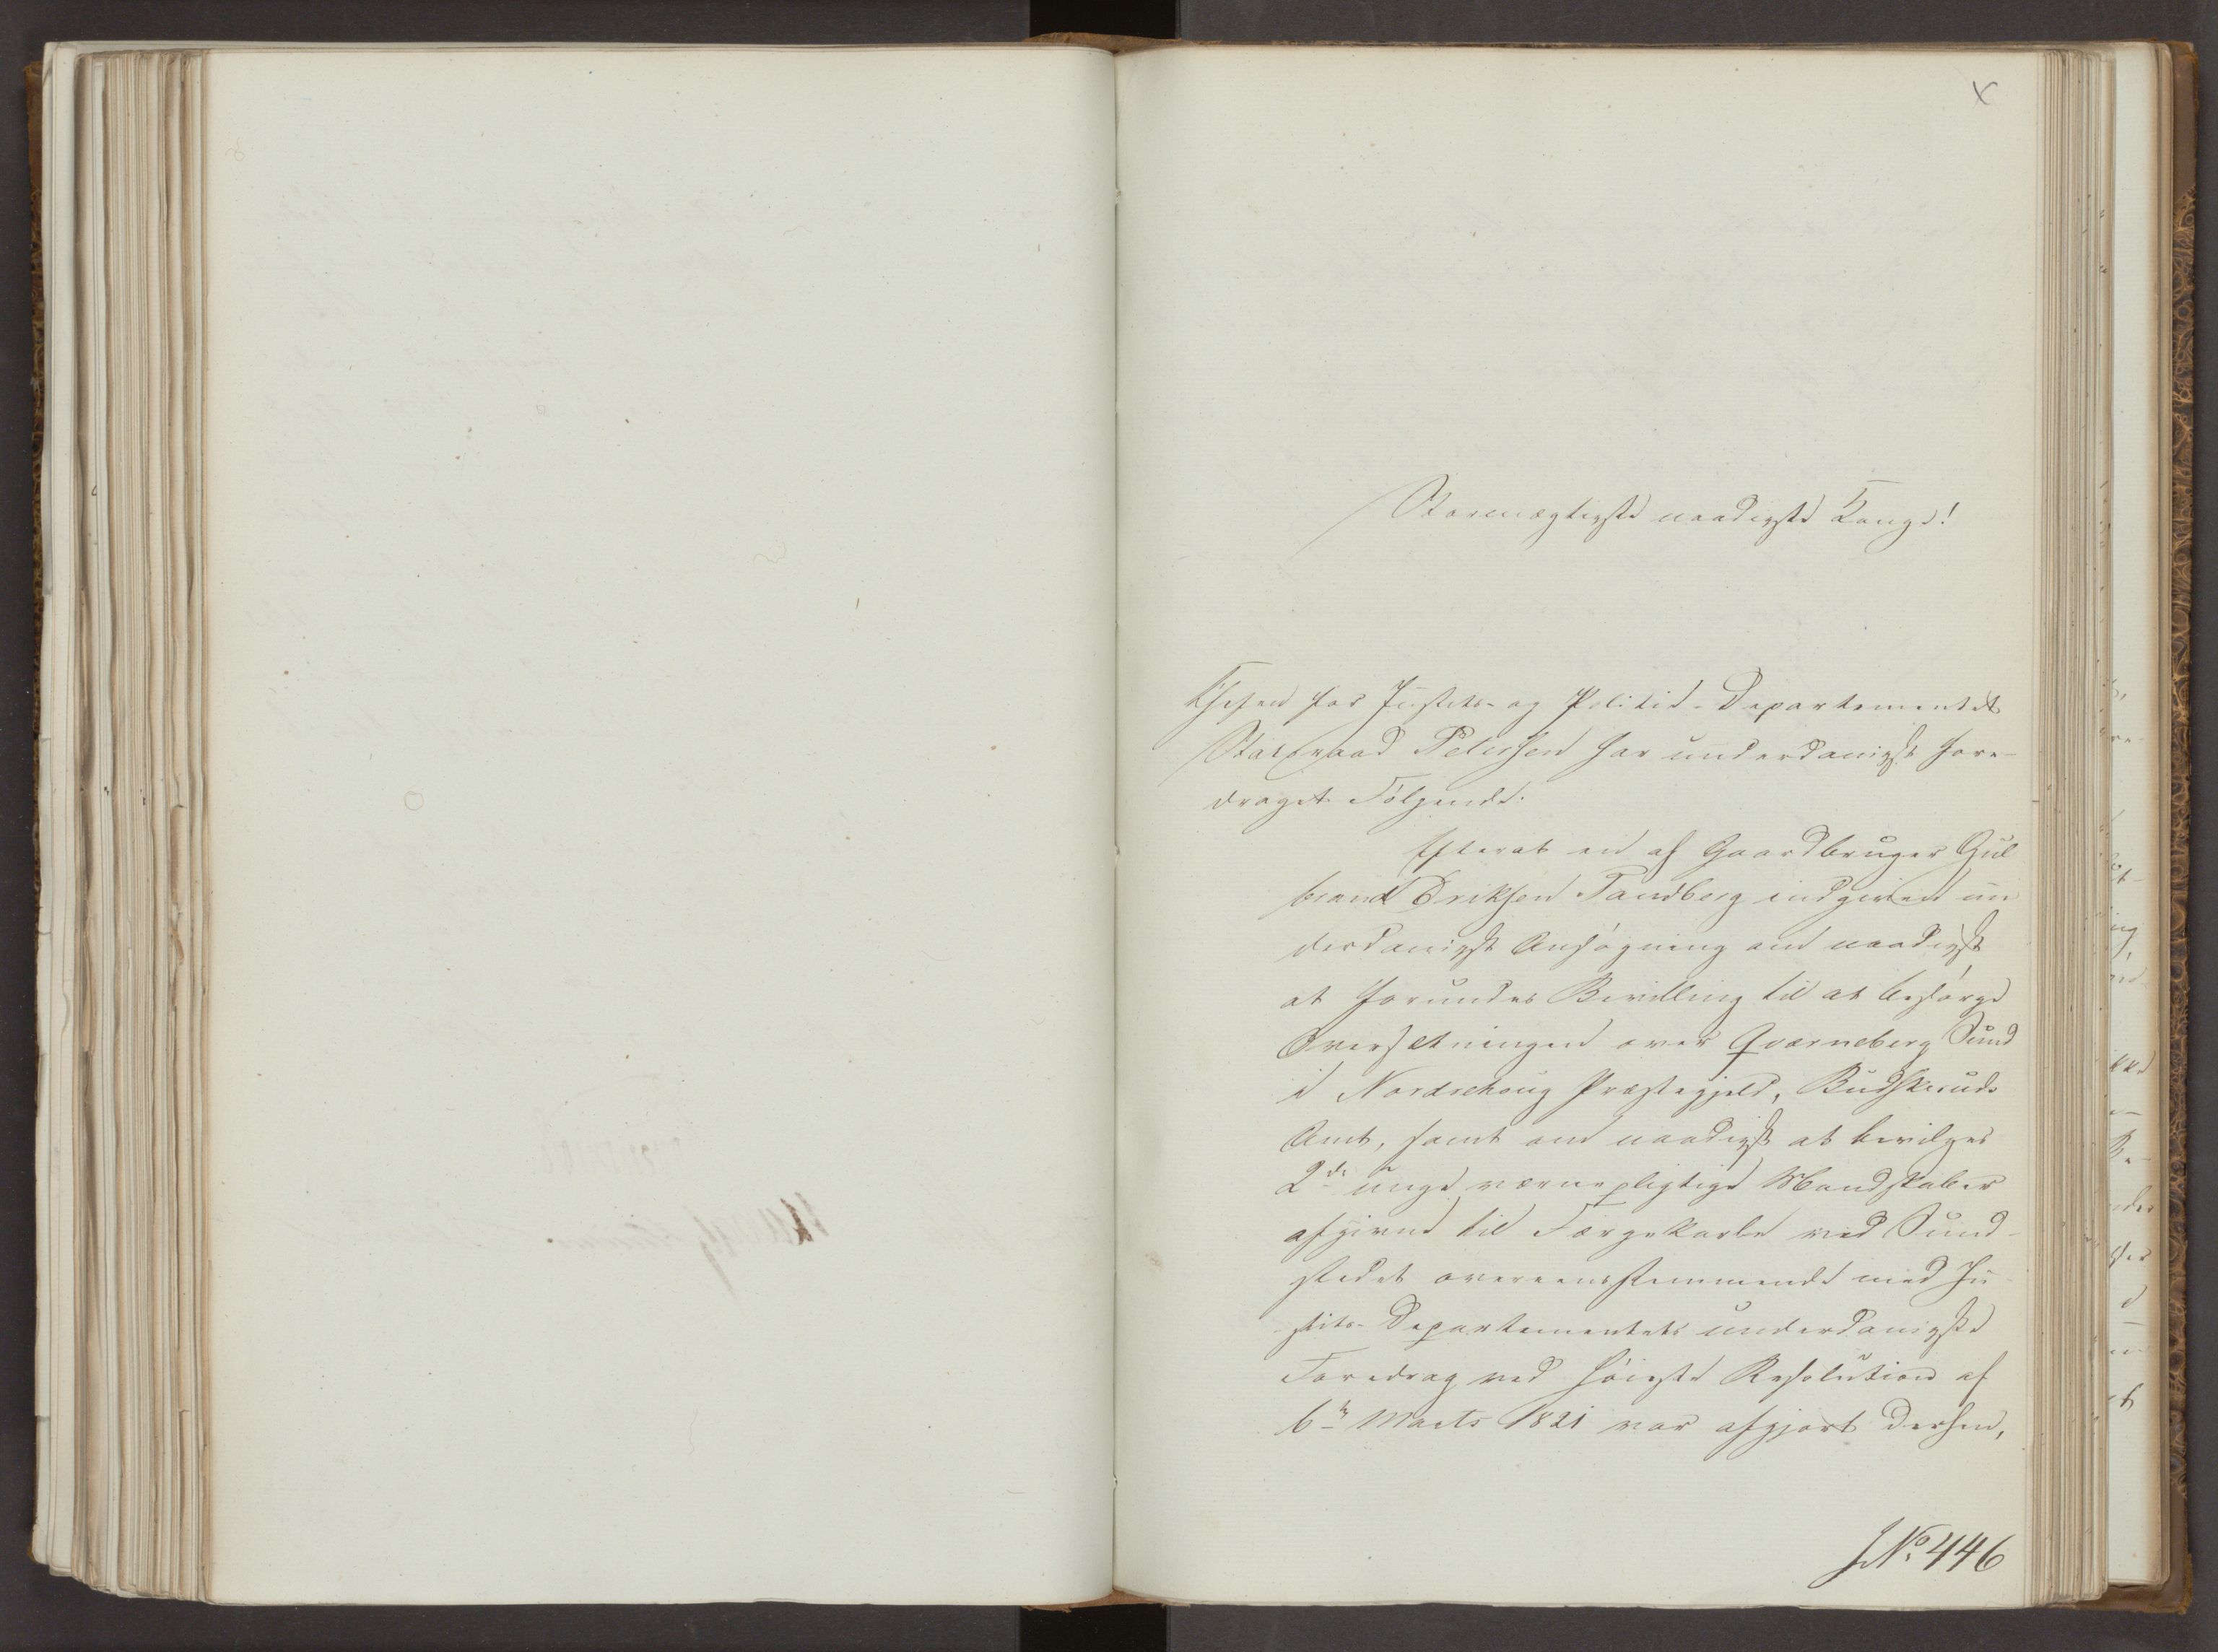 x
Stormægtigste naadigste Konge!
Chefen for Justits- og Politie-Departementet
Statsraad Petersen har underdanigst fore-
draget Følgende:
Efterat en af Gaardbruger Gul
brand Eriksen Tandberg indgiven un
derdanigst Ansøgning om naadigst
at forundes Bevilling til at besørge
Oversætningen over Qværneberg Sund
i Norderhoug Præstegjeld, Budskeruds
Amt, samt om naadigst at bevilges
2de unge værnepligtige Mandskaber
afgivne til Færgekarle ved Sund-
stedet overeensstemmende med Ju-
stits-Departementets underdanigste
Foredrag ved høieste Resolution af
6te Marts 1821 var afgjort derhen,
JNo. 446